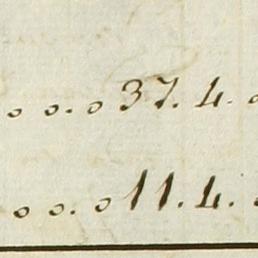 o o. o 37. 4.
o o. o 11. 4.